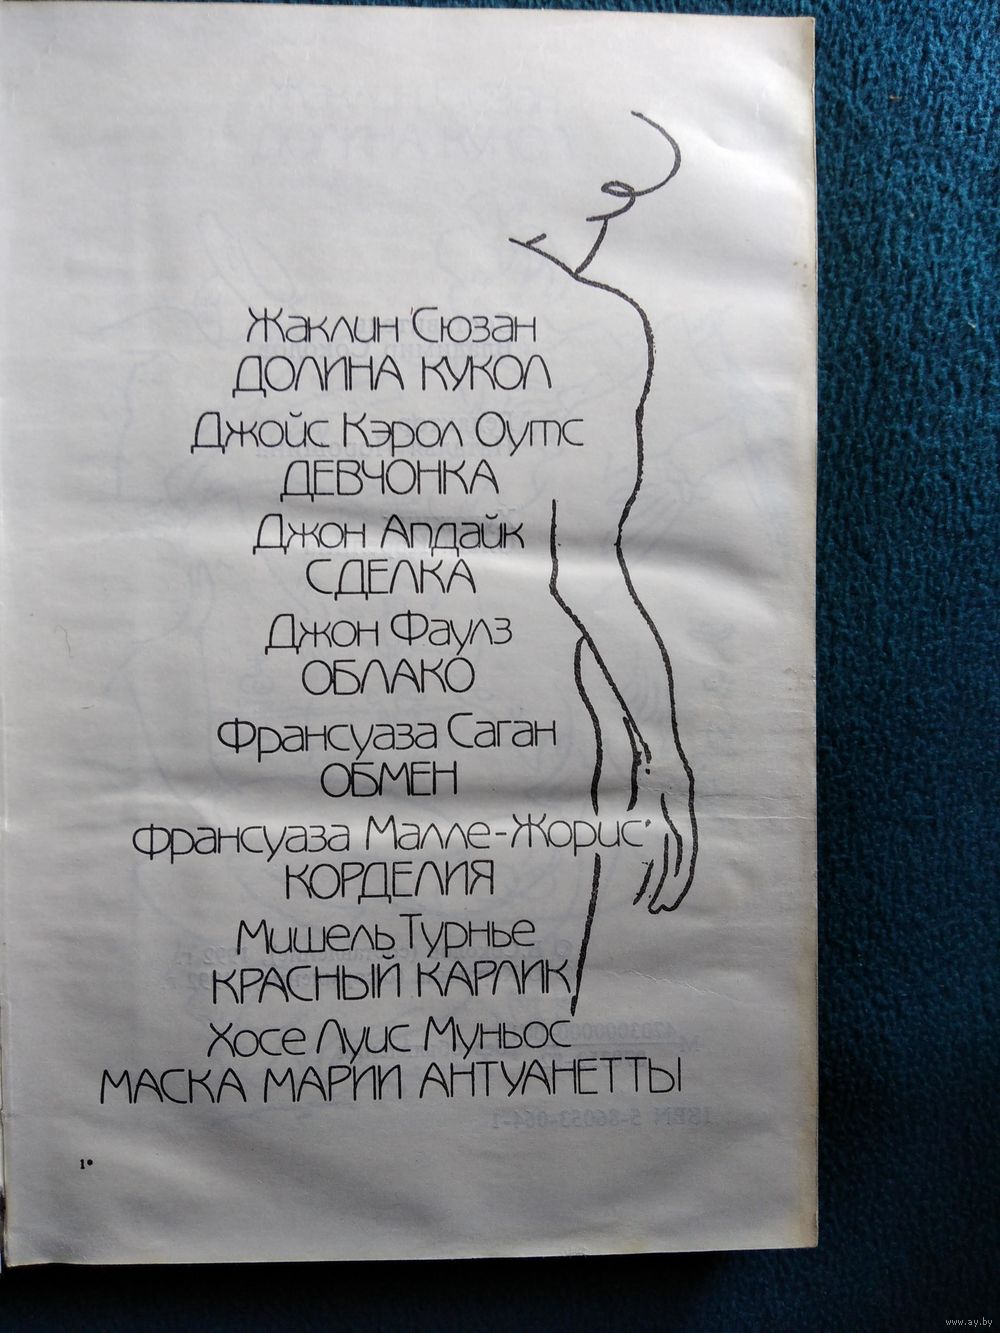 Жаклин Сюзан
ДОЛИНА КУКОЛ
Джойс Кэрол Оутс
ДЕВЧОНКА
Джон Апдайк
СДЕЛКА
Джон Фаулз
ОБЛАКО
Франсуаза Саган
ОБМЕН
Франсуаза Малле-Жорис
КОРДЕЛИЯ
Мишель Турнье
КРАСНЫЙ КАРЛИК
Хосе Луис Муньос
МАСКА МАРИИ АНТУАНЕТТЫ
ISBN 5-86053-064-1
1*
www.ay.by